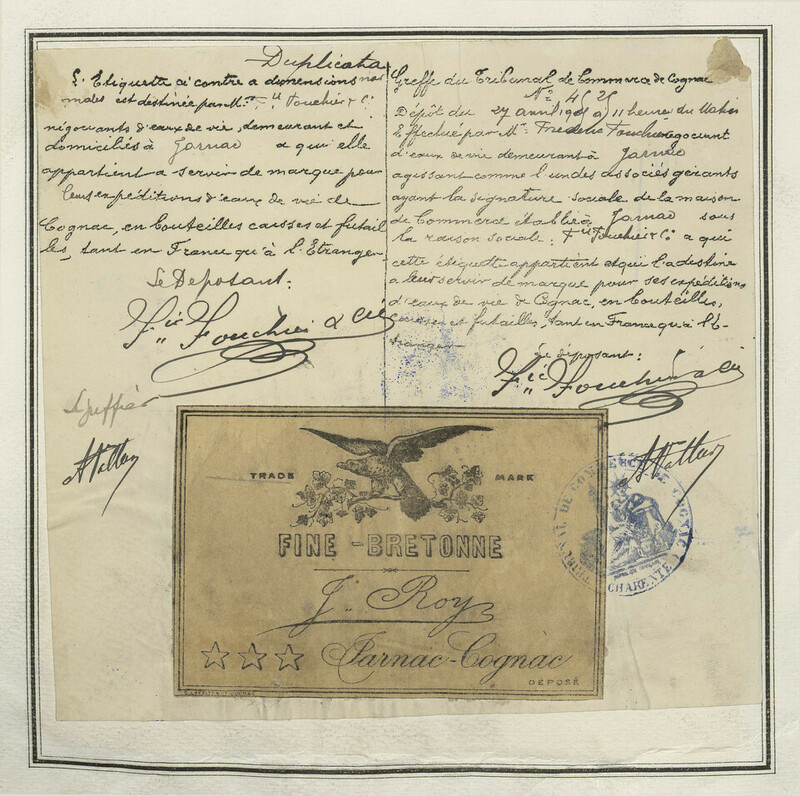 Duplicata
L'Etiquette ci contre a dimensions nor
males est destinée par Mr. Fic Fouchier & Cie
négociants d'eaux de vie, demeurant et
domiciliés à Jarnac a qui elle
appartient a servir de marque pour
leurs expéditions d'eaux de vie de
Cognac, en bouteilles caisses et futail
les, tant en France qu'à l'Etranger.
Le Déposant:
Fic Fouchier & Cie
Greffe du Tribunal de Commerce de Cognac
No 45
Dépôt du 27 avril à 11 heures du Matin
Effectué par Mr. Frédéric Fouchier négociant
d'eaux de vie demeurant à Jarnac
agissant comme l'un des associés gérants
ayant la signature sociale de la maison
de Commerce établie à Jarnac sous
la raison sociale: Fic Fouchier & Cie a qui
cette étiquette appartient et qui l'a destine
a leur servir de marque pour ses expéditions
d'eaux de vie de Cognac, en bouteilles,
caisses et futailles, tant en France qu'à l'é-
tranger.
Le déposant:
Fic Fouchier & Cie
TRADE MARK
FINE-BRETONNE
J. Roy
Jarnac-Cognac
DÉPOSÉ
TRIBUNAL DE COMMERCE DE COGNAC
(CHARENTE)